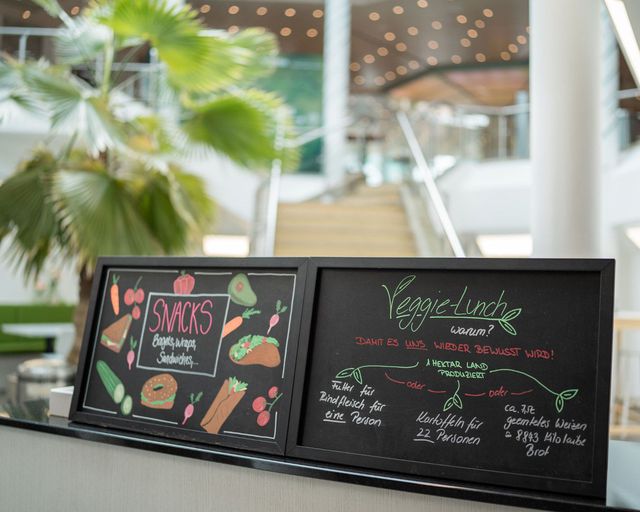 SNACKS
Bagels, Wraps,
Sandwiches,...
Veggie-Lunch
warum?
DAMIT ES UNS WIEDER BEWUSST WIRD!
1 HEKTAR LAND
PRODUZIERT
oder
oder
Futter für
Rindfleisch für
eine Person
Kartoffeln für
22 Personen
ca. 7,5t
geerntetes Weizen
= 8843 Kilo laube
Brot